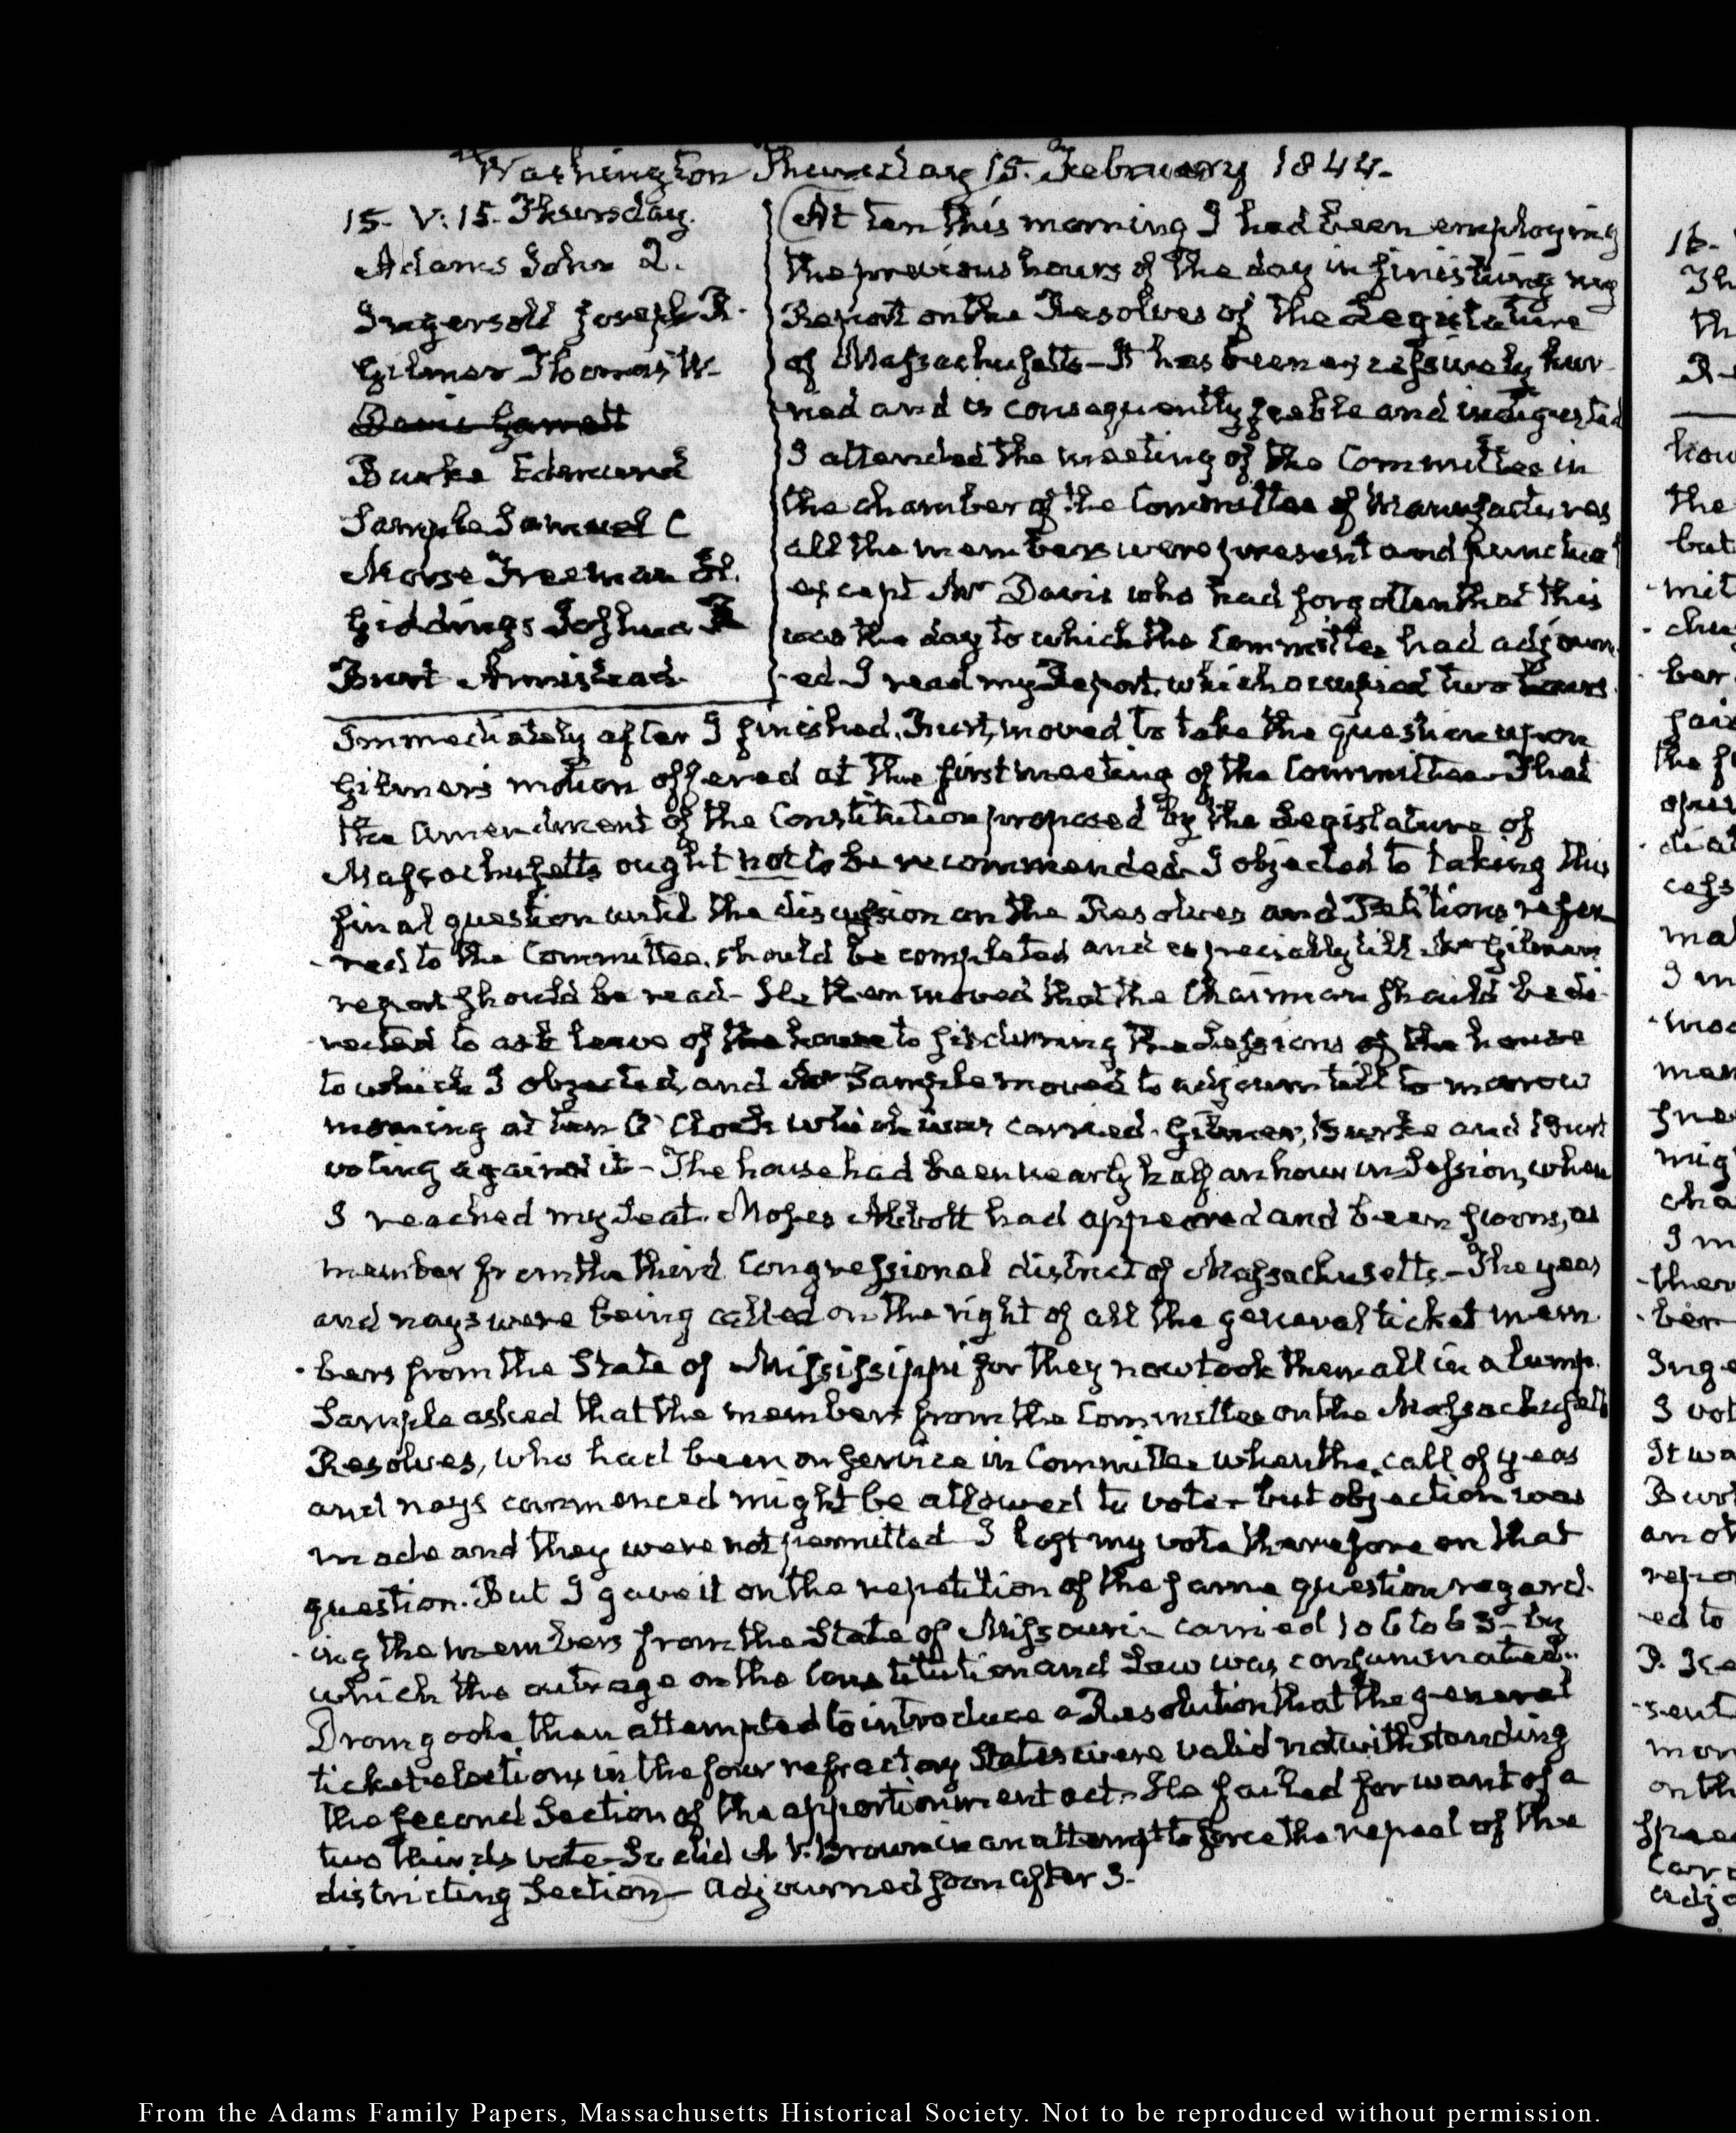 Washington Thursday 15. February 1844.
15. V:15. Thursday.
Adams John Q.
Ingersoll Joseph R.
Gilmer Thomas W.
Davis Garrett
Burke Edmund
Sample Samuel C
Morse Freeman H.
Giddings Joshua R
Burt Armistead.
At ten this morning I had been employing
the previous hours of the day in finishing my
Report on the Resolves of the Legislature
of Massachusetts— It has been excessively hur-
ried and is consequently feeble and indigested
I attended the meeting of the Committee in
the chamber of the Committee of Manufactures
all the members were present and punctual
except Mr Davis who had forgotten that this
was the day to which the Committee had adjourn-
-ed. I read my Report, which occupied two hours.
Immediately after I finished, Burt, moved to take the question upon
Gilmer's motion offered at the first meeting of the Committee— That
the Amendment of the Constitution proposed by the Legislature of
Massachusetts ought not to be recommended. I objected to taking this
final question until the discussion on the Resolves and Petitions refer-
-red to the Committee, should be completed and especially till Mr Gilmer's
report should be read— He then moved that the Chairman should be di-
-rected to ask leave of the house to sit during the Sessions of the house
to which I objected, and Mr Sample moved to adjourn till to-morrow
morning at ten O'Clock which was carried. Gilmer, Burke and Burt
voting against it— The house had been nearly half an hour in Session, when
I reached my Seat. Moses Abbott had appeared and been sworn, as
member from the third Congressional district of Massachusetts.— The yeas
and nays were being called on the right of all the general ticket mem-
-bers from the State of Mississippi for they now took them all in a lump.
Sample asked that the members from the Committee on the Massachusetts
Resolves, who had been on service in Committee when the call of yeas
and nays commenced might be allowed to vote— but objection was
made and they were not permitted I lost my vote therefore on that
question. But I gave it on the repetition of the same question regard-
-ing the members from the State of Missouri— carried 106 to 63— by
which the outrage on the Constitution and Law was consummated.
Dromgoole then attempted to introduce a Resolution that the general
ticket elections in the four refractory States were valid notwithstanding
the second Section of the apportionment act. He failed for want of a
two thirds vote— So did A. V. Brown in an attempt to force the repeal of the
districting Section— Adjourned soon after 3.
16.
Th
th
R
how
the
but
-mit
-chu
-ber
fai
the f
opin
-diat
cess
ma
I m
-mo
mem
fue
mig
cha
I m
-ther
-ber
Inge
I vot
It wa
Burt
anot
repo
-ed to
J. 
-sent
mor
on th
spee
Car
adjo
From the Adams Family Papers, Massachusetts Historical Society. Not to be reproduced without permission.